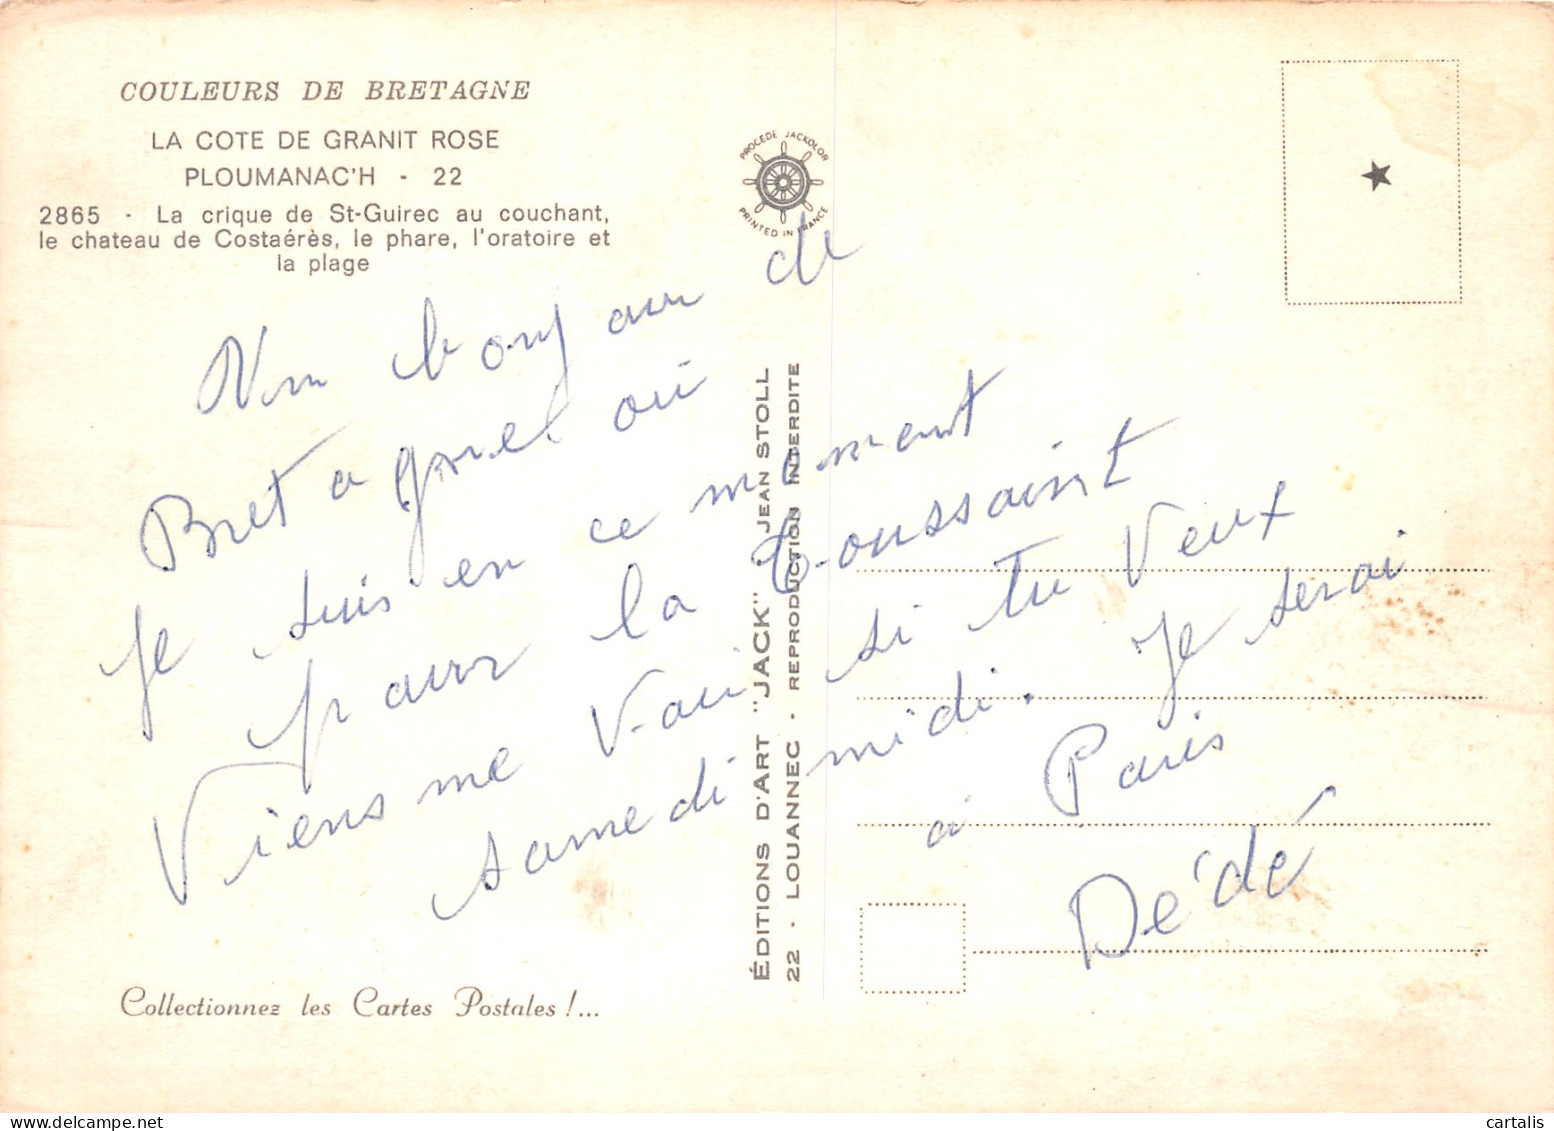 COULEURS DE BRETAGNE
LA COTE DE GRANIT ROSE
PLOUMANAC'H - 22
2865 - La crique de St-Guirec au couchant,
le chateau de Costaérès, le phare, l'oratoire et
la plage
PROCEDE JACKOLOR
PRINTED IN FRANCE
bonjour de
Bretagne où
Je suis en ce moment
pour la Toussaint
Viens me voir si tu veux
samedi midi. Je serai
à Paris
Dédé
ÉDITIONS D'ART "JACK" - JEAN STOLL
22 - LOUANNEC - REPRODUCTION INTERDITE
Collectionnez les Cartes Postales !...
cartalis